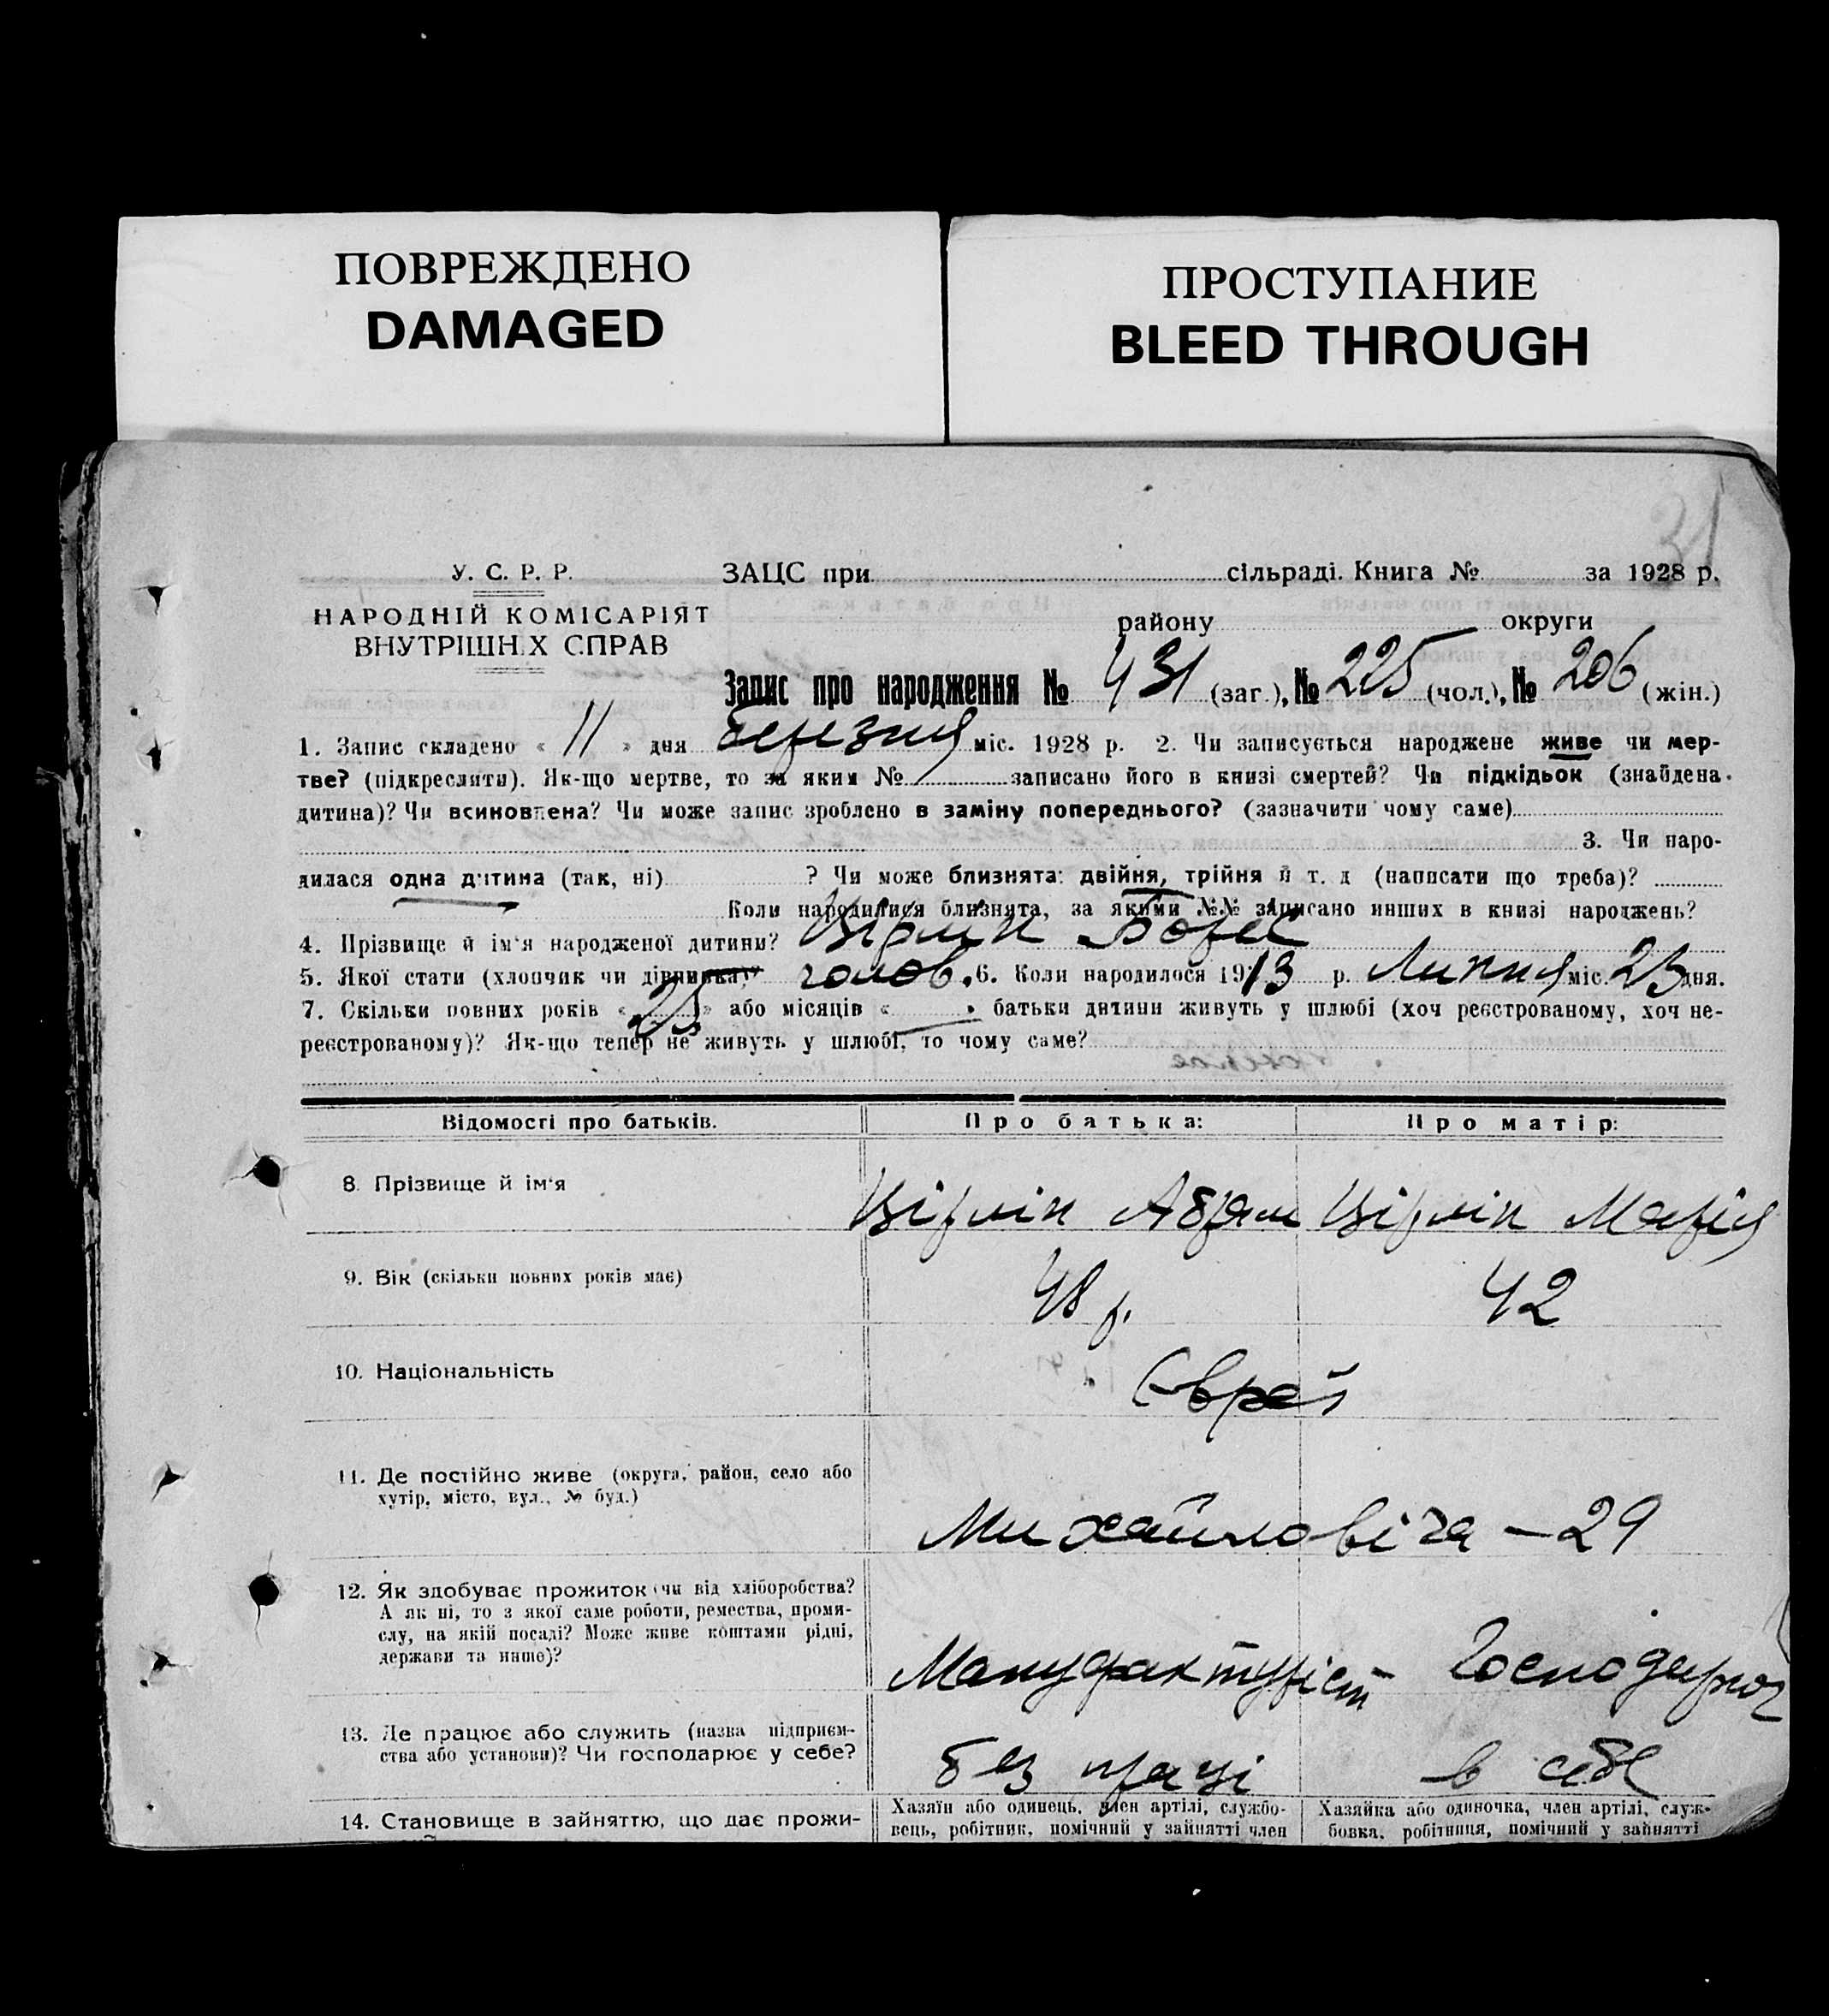 ПОВРЕЖДЕНО
DAMAGED
ПРОСТУПАНИЕ
BLEED THROUGH
31
У. С. Р. Р.
НАРОДНІЙ КОМІСАРІЯТ
ВНУТРІШНІХ СПРАВ
ЗАЦС при сільраді. Книга № за 1928 р.
району округи
Запис про народження № 431 (заг.), № 225 (чол.), № 206 (жін.)
1. Запис складено « 11 » дня Березня міс. 1928 р. 2. Чи записується народжене живе чи мер-
тве? (підкреслити). Як-що мертве, то за яким № записано його в книзі смертей? Чи підкідьок (знайдена
дитина)? Чи всиновлена? Чи може запис зроблено в заміну попереднього? (зазначити чому саме)
3. Чи наро-
дилася одна дитина (так, ні) ? Чи може близнята: двійня, трійня й т. д (написати що треба)?
Коли народилися близнята, за якими №№ записано инших в книзі народжень?
4. Прізвище й ім'я народженої дитини? Цірлін Борис
5. Якої стати (хлопчик чи дівчинка)? чолов. 6. Коли народилося 1913 р. Липня міс. 23 дня.
7. Скільки повних років « 25 » або місяців « » батьки дитини живуть у шлюбі (хоч реєстрованому, хоч не-
реєстрованому)? Як-що тепер не живуть у шлюбі, то чому саме?
Відомості про батьків. Про батька: Про матір:
8. Прізвище й ім'я Цірлін Абрам Цірлін Марія
9. Вік (скільки повних років має) 48 р. 42
10. Національність Єврей
11. Де постійно живе (округа, район, село або
хутір, місто, вул., № буд.)
Михайловіча – 29
12. Як здобуває прожиток (чи від хліборобства?
А як ні, то з якої саме роботи, ремества, проми-
слу, на якій посаді? Може живе коштами рідні,
держави та инше)?
Мануфактуріст Господарює
13. Де працює або служить (назва підприєм-
ства або установи)? Чи господарює у себе?
без праці в себе
14. Становище в зайняттю, що дає прожи-
Хазяїн або одинець, член артілі, службо-
вець, робітник, помічний у зайнятті член
Хазяйка або одиночка, член артілі, служ-
бовка, робітниця, помічний у зайнятті